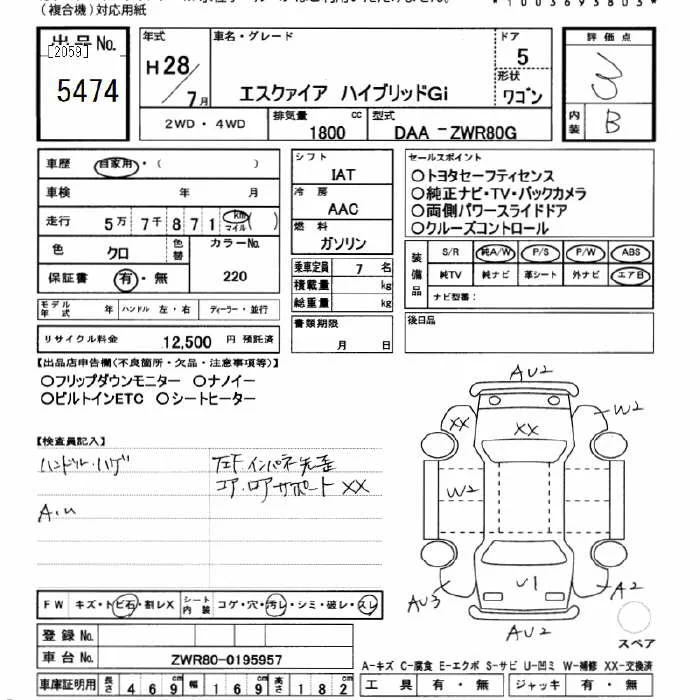 (複合機)対応用紙
出品No.
[2059]
5474
年式
H28/7月
車名・グレード
エスクァイア ハイブリッドGi
ドア
5
形状
ワゴン
評価点
3
内装
B
2WD・4WD
排気量
1800 cc
型式
DAA -ZWR80G
車歴 自家用・( )
車検 年 月
走行 5万 7千 8 7 1 km マイル ( )
色 クロ
色替
カラーNo.
220
保証書 有・無
シフト
IAT
冷房
AAC
燃料
ガソリン
乗車定員 7 名
積載量 kg
総重量 kg
セールスポイント
○トヨタセーフティセンス
○純正ナビ・TV・バックカメラ
○両側パワースライドドア
○クルーズコントロール
装備品
S/R 純A/W P/S P/W ABS
純TV 純ナビ 革シート 外ナビ エアB
ナビ型番:
モデル年式 年 ハンドル 左・右 ディーラー・並行
リサイクル料金 12,500 円 預託済
書類期限
月 日
後日品
【出品店申告欄(不良箇所・欠品・注意事項等)】
○フリップダウンモニター ○ナノイー
○ビルトインETC ○シートヒーター
【検査員記入】
ハンドル・ハゲ
A・U
コア・ロアサポート XX
AU2
XX
XX
W2
W2
U1
AU3
A2
AU2
スペア
FW キズ・トビ石・割レX
シート内装 コゲ・穴・汚レ・シミ・破レ・スレ
登録No.
車台No. ZWR80-0195957
車庫証明用 長さ 469 幅 169 高さ 182
A-キズ C-腐食 E-エクボ S-サビ U-凹ミ W-補修 XX-交換済
工具 有・無 ジャッキ 有・無